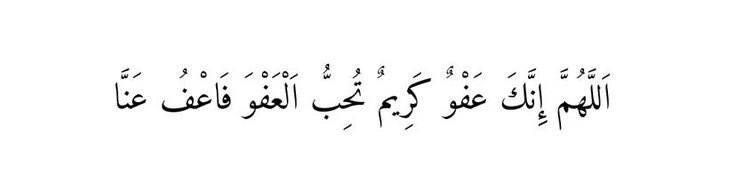 اَللَّهُمَّ إِنَّكَ عَفْوٌ كَرِيمٌ تُحِبُّ اَلْعَفْوَ فَاعْفُ عَنَّا